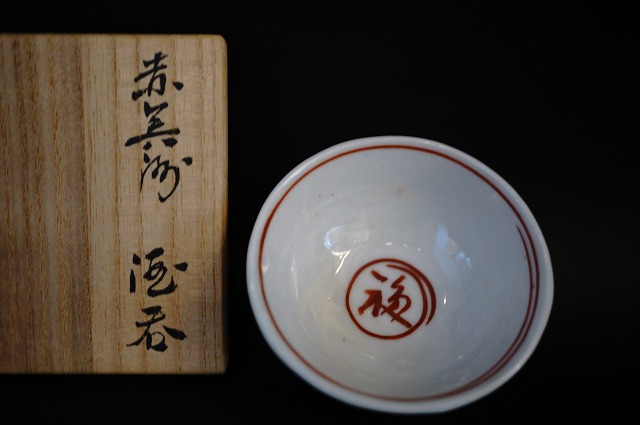 赤呉須 酒呑
福